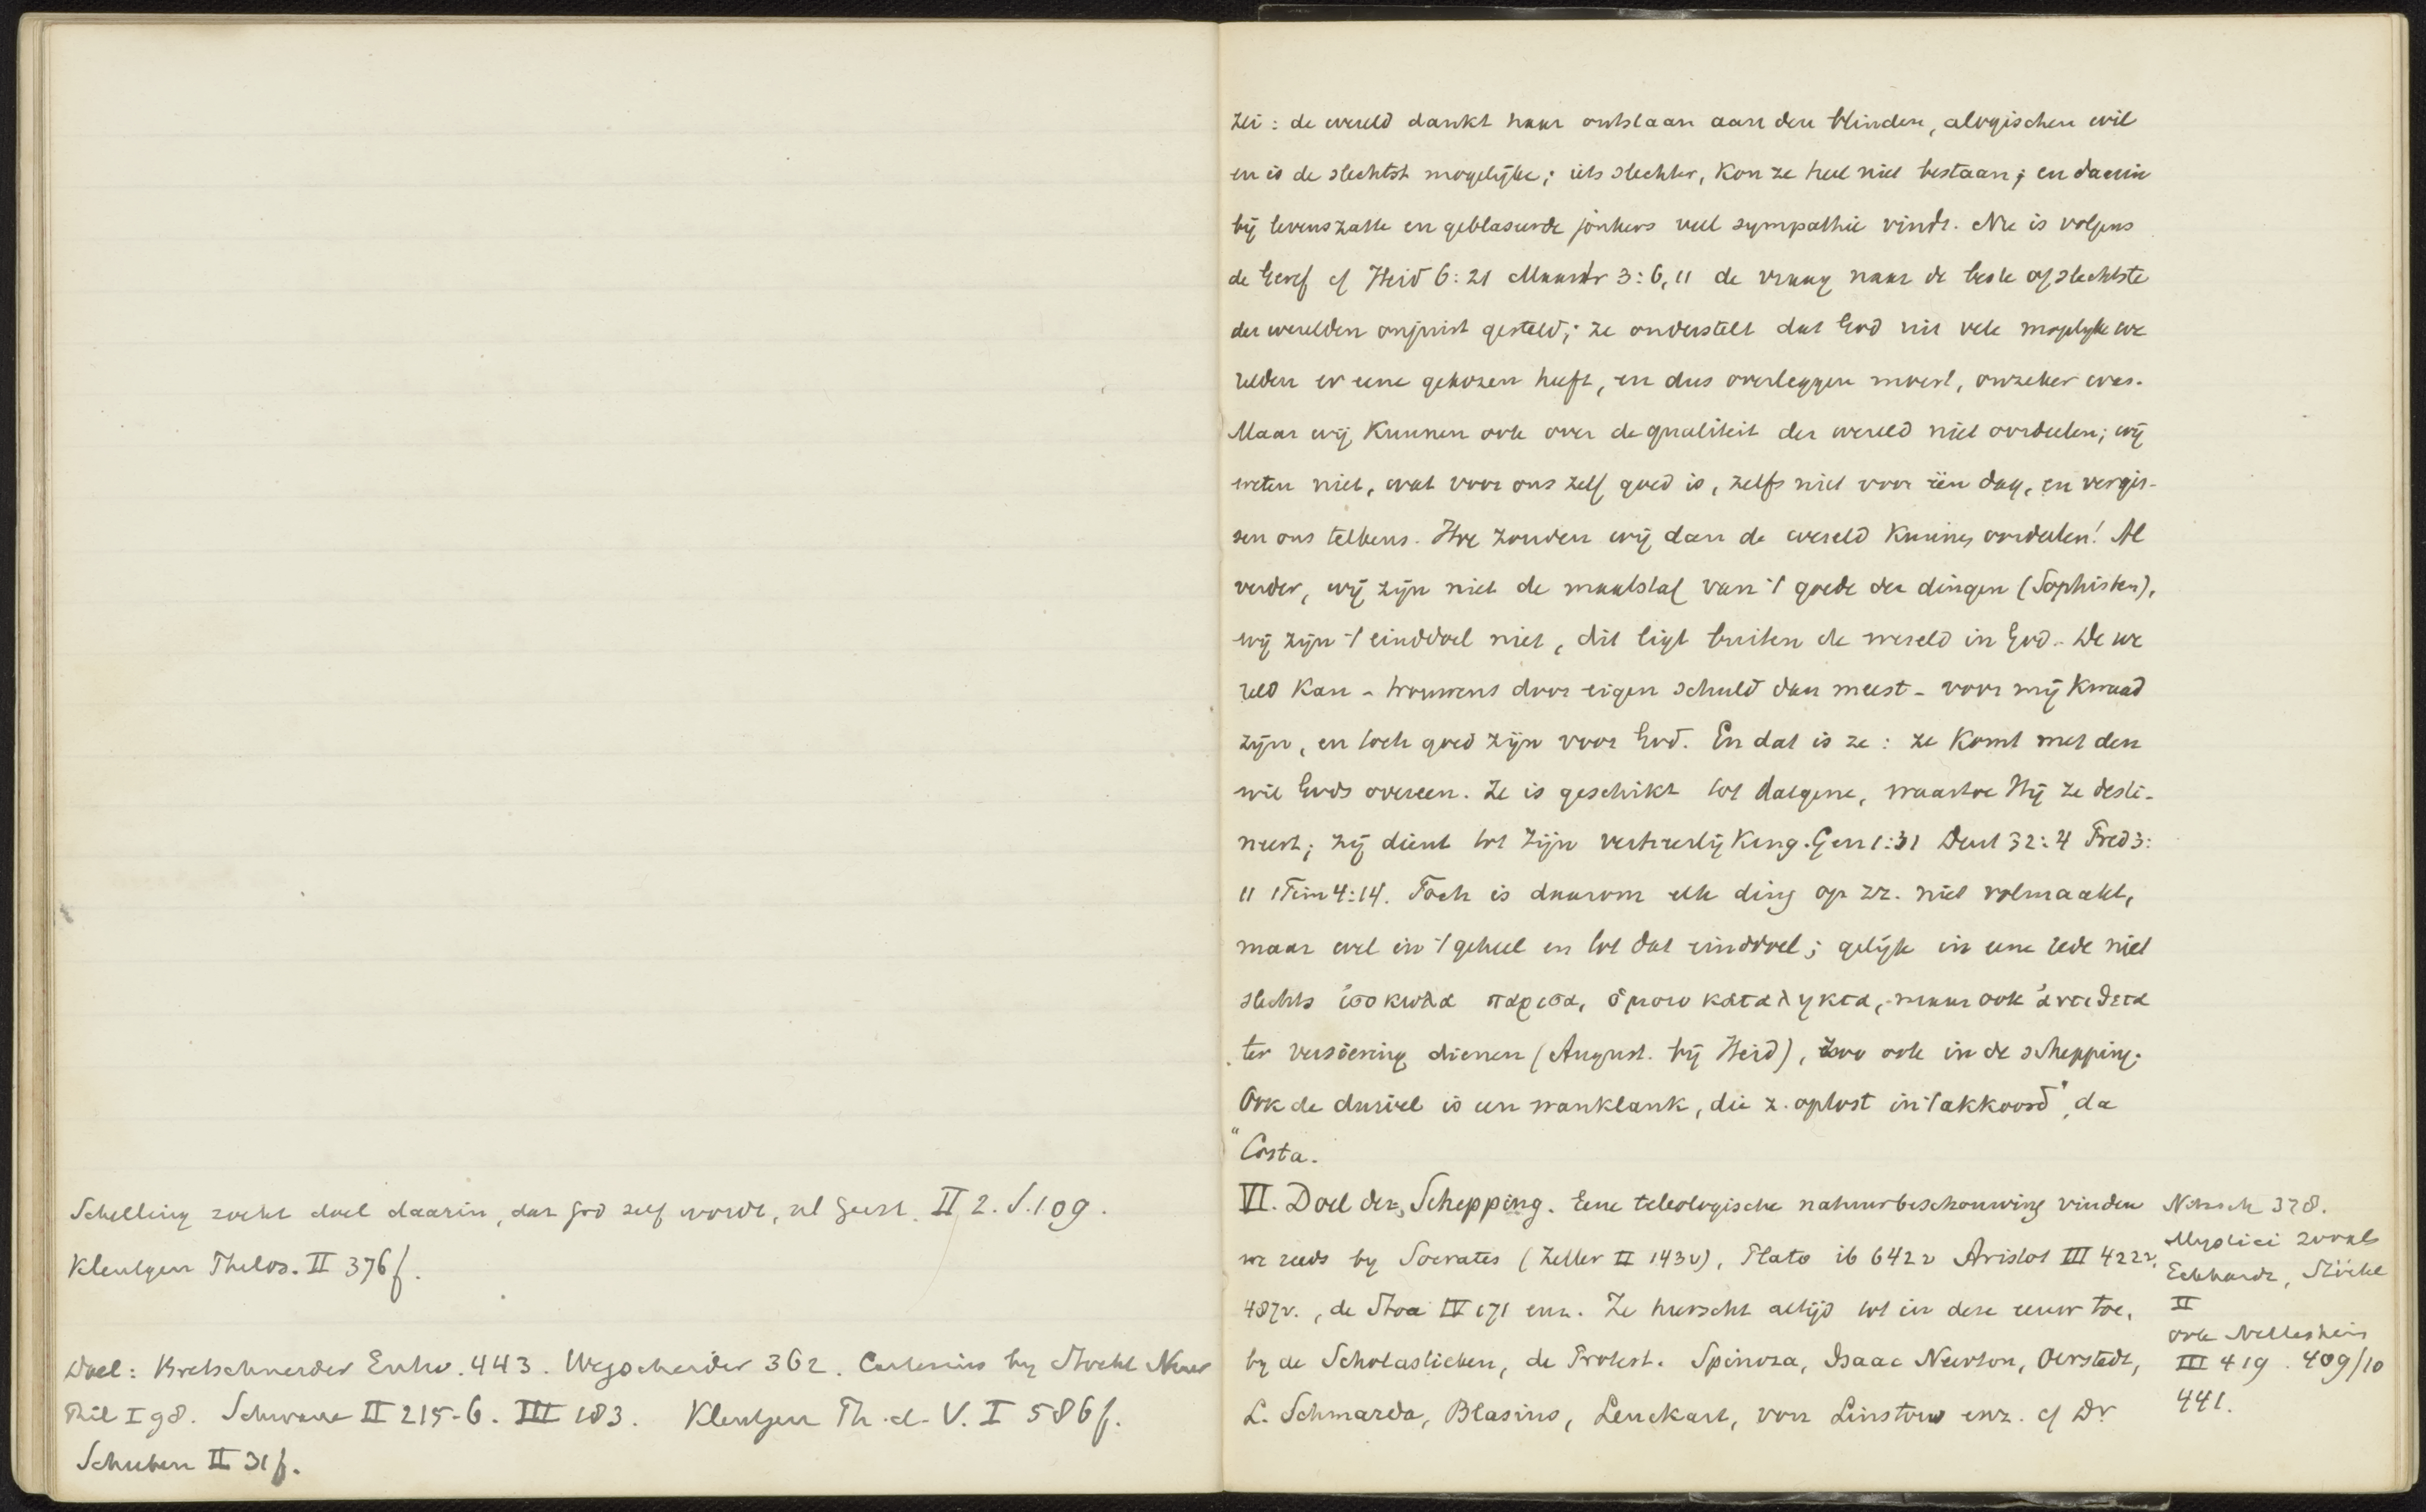 Schelling zoekt doel daarin, dat God zelf wordt, nl Geest. II 2. S. 109.
Kleutgen Thelos. II 376f.
Doel: Bretschneider Entw. 443. Wegscheider 362. Cartesius by Stöckl Neuer
Phil I 98. Schwane II 215-6. III 183. Kleutgen Th. d. V. I 586f.
Scheeben II 31f.
zei: de wereld dankt haar ontstaan aan den blinden, alogischen wil
en is de slechtst mogelijke; iets slechter, kon ze heel niet bestaan; en daarin
bij levenszatte en geblaseerde jonkers veel sympathie vindt. Nu is volgens
de Geref cf Heid 6:21 Maastr 3:6,11 de vraag naar de beste of slechtste
der werelden onjuist gesteld; ze onderstelt dat God uit vele mogelyke we
relden er eene gekozen heeft, en dus overleggen moest, onzeker was.
Maar wij kunnen ook over de qualiteit der wereld niet oordeelen; wij
weten niet, wat voor ons zelf goed is, zelfs niet voor één dag, en vergis-
sen ons telkens. Hoe zouden wij dan de wereld kunnen oordeelen! Al
verder, wij zijn niet de maatstaf van 't goede der dingen (Sophisten),
wij zijn 't einddoel niet, dit ligt buiten de wereld in God. De we
reld kan - trouwens door eigen schuld dan meest - voor mij kwaad
zijn, en toch goed zijn voor God. En dat is ze: ze komt met den
wil Gods overeen. Ze is geschikt tot datgene, waartoe Hij ze desti-
neert; zij dient tot Zijn verheerlijking. Gen 1:31 Deut 32:4 Pred 3:
11 1Tim 4:14. Toch is daarom elk ding op zz. niet volmaakt,
maar wel in 't geheel en tot dat einddoel; gelijk in eene rede niet
slechts ἰσοκωλα παρισα, ὁμοιοκαταληκτα, maar ook ἀντιθετα
ter versiering dienen (August. bij Heid), zoo ook in de schepping.
Ook de duivel is een wanklank, die z. oplost in 't akkoord", da
" Costa.
VI. Doel der Schepping. Eene teleologische natuurbeschouwing vinden
we reeds by Socrates (Zeller II 143v), Plato ib 642v Aristot III 422v,
487v., de Stoa IV 171 enz. Ze heerscht altijd tot in deze eeuw toe,
by de Scholastieken, de Protest. Spinoza, Isaac Newton, Oerstedt,
L. Schmarda, Blasius, Leuckart, von Linstow enz. cf Dr
Nitzsch 378.
Mystici zooals
Eckhardt, Stöckl
II
ook Nettesheim
III 419. 409/10
441.